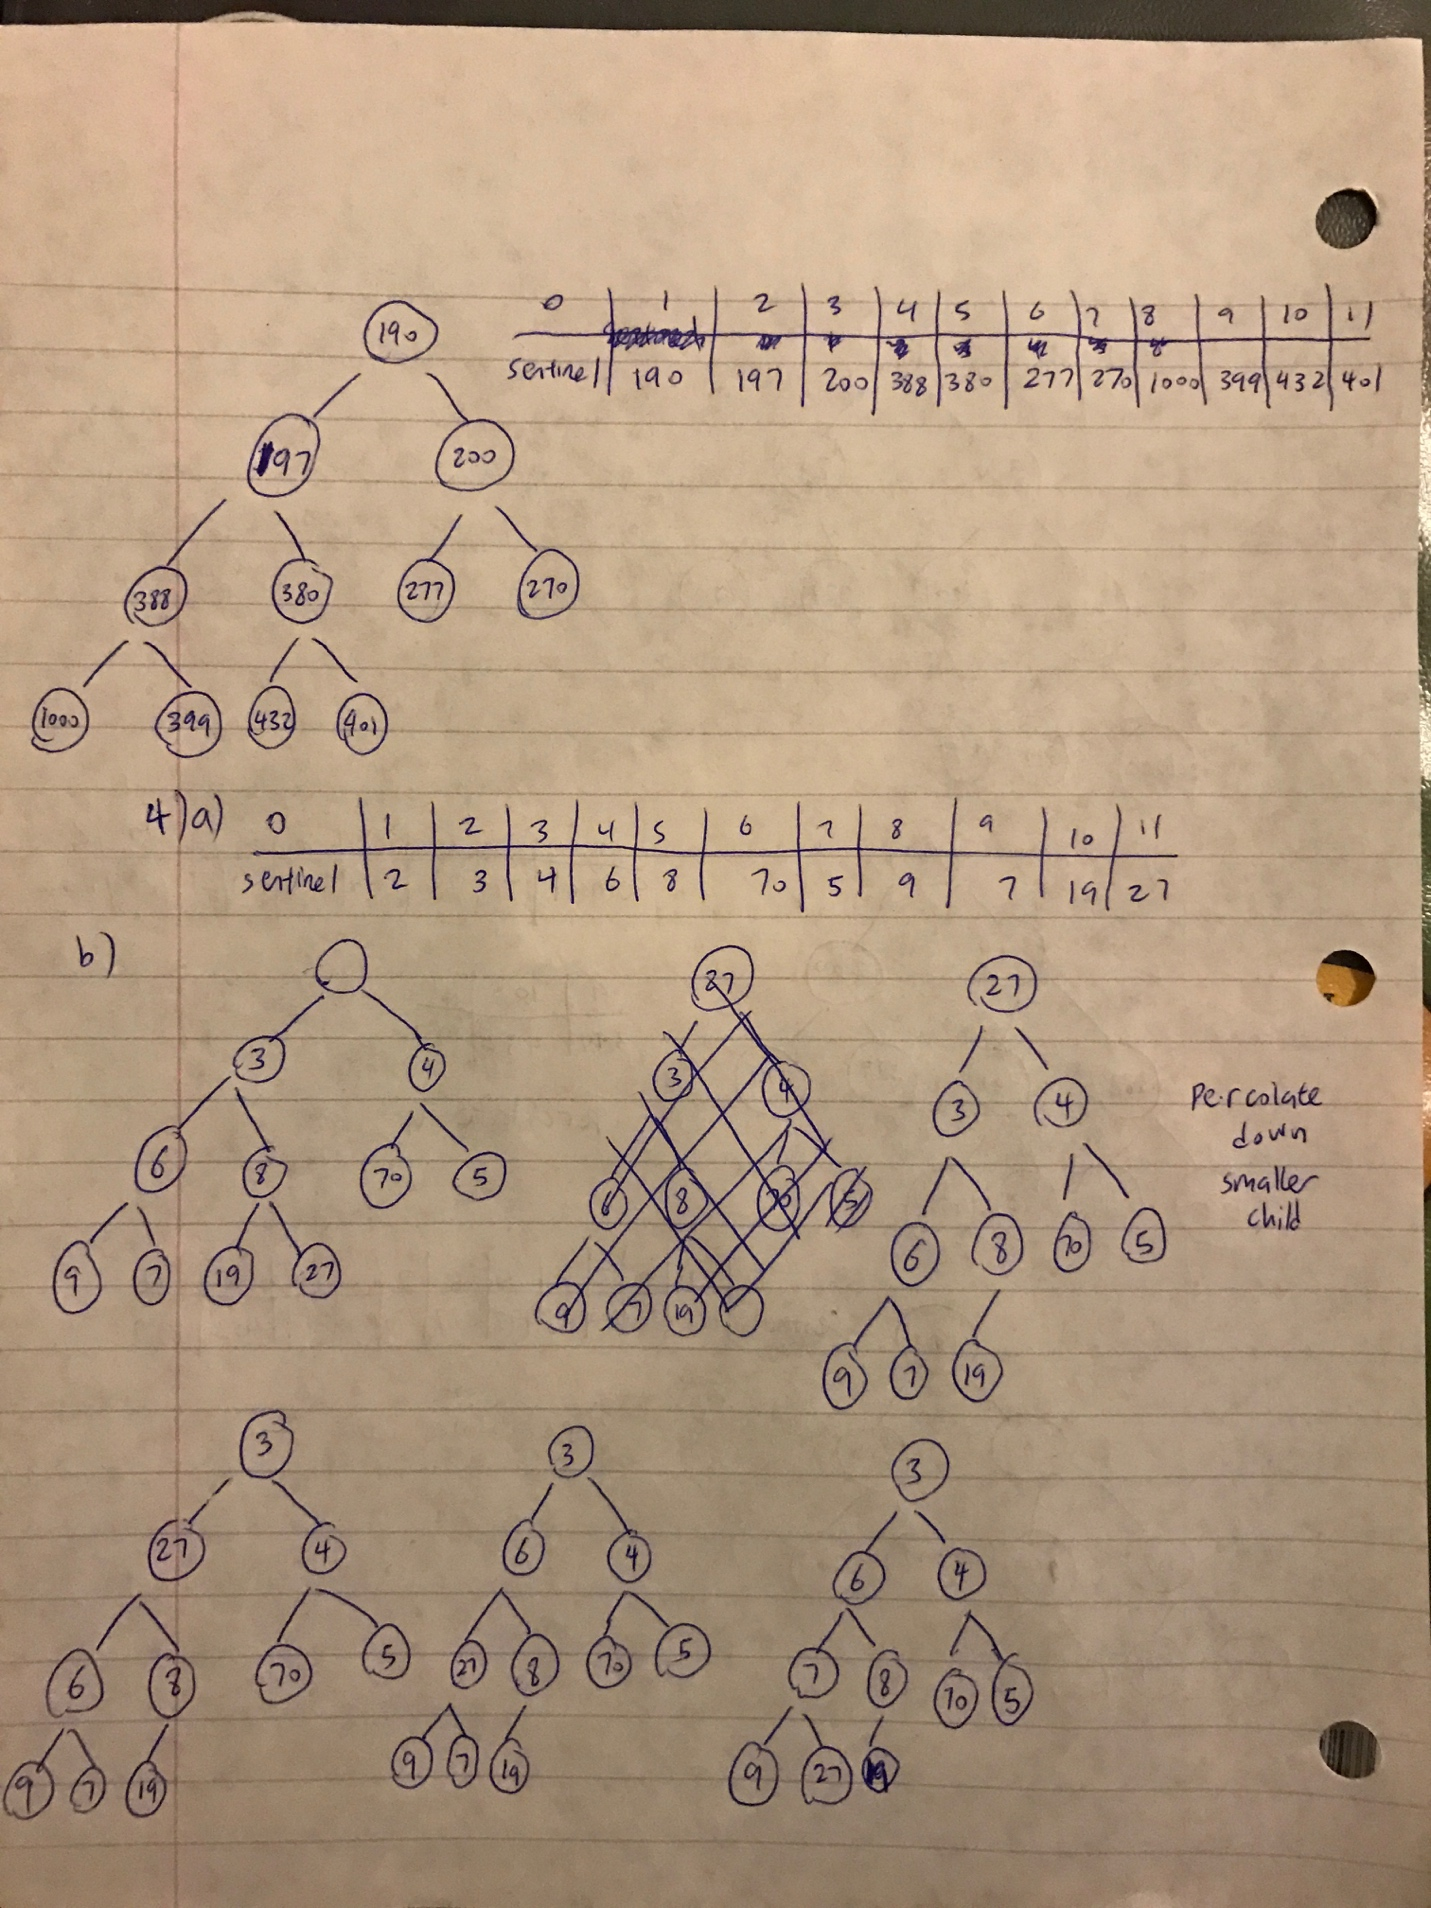 0 1 2 3 4 5 6 7 8 9 10 11
sentinel 190 197 200 388 380 277 270 1000 399 432 401
190
197 200
388 380 277 270
1000 399 432 401
4)a) 0 1 2 3 4 5 6 7 8 9 10 11
sentinel 2 3 4 6 8 70 5 9 7 19 27
b)
3 4
6 8 70 5
9 7 19 27
27
3 4
6 8 70 5
9 7 19
27
3 4
6 8 70 5
9 7 19
Percolate
down
smaller
child
3
27 4
6 8 70 5
9 7 19
3
6 4
27 8 70 5
9 7 19
3
6 4
7 8 70 5
9 27 19